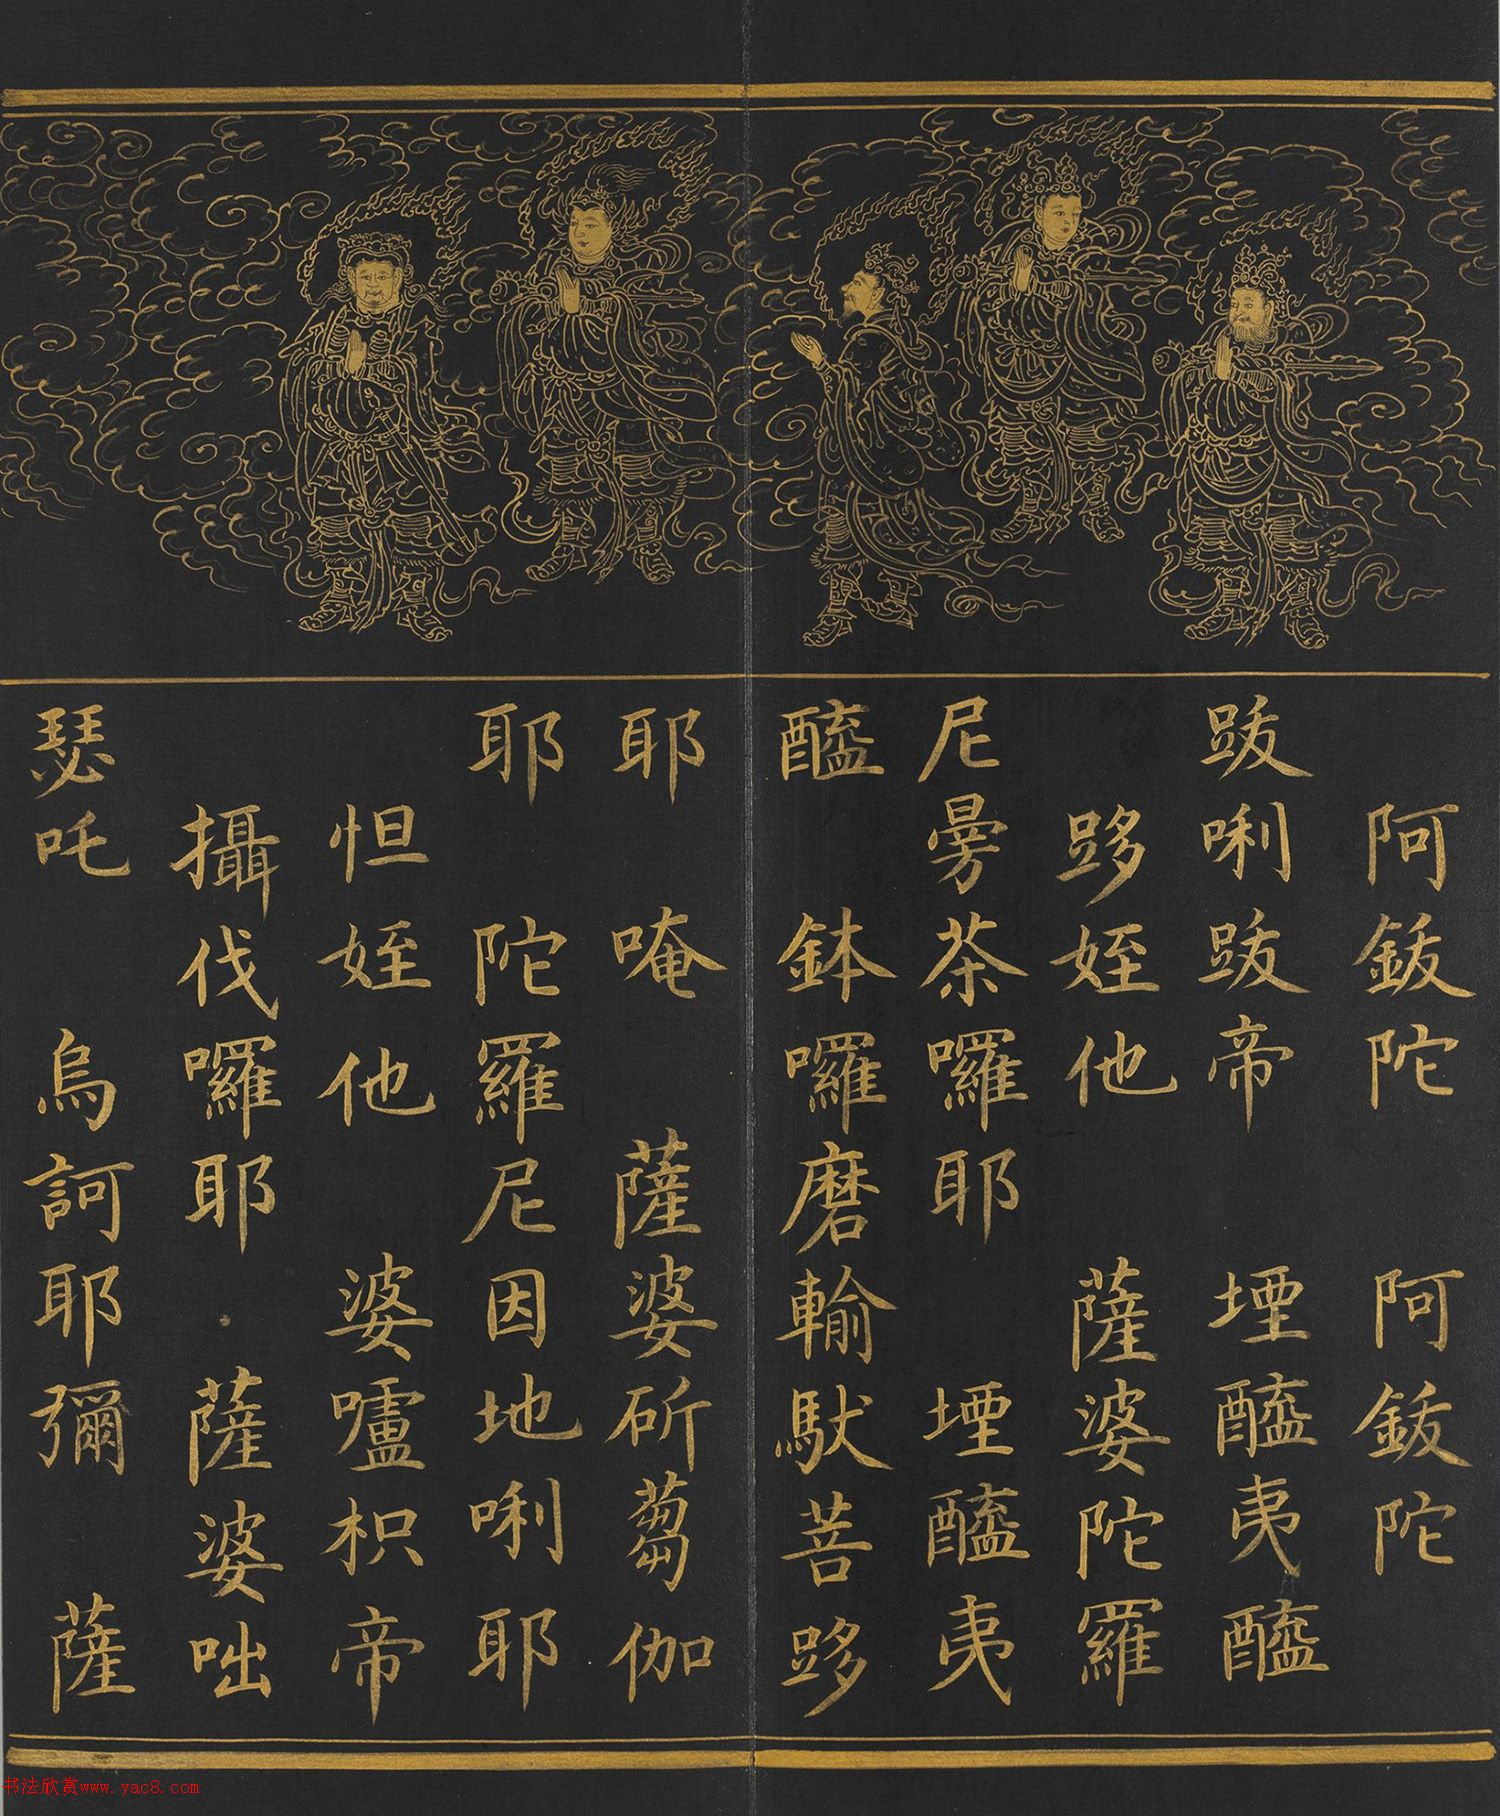 阿鈸陀 阿鈸陀
跋唎跋帝 堙醯夷醯
跢姪他 薩婆陀羅
尼曼茶囉耶 堙醯夷
醯 鉢囉磨輸馱菩跢
耶 唵 薩婆斫蒭伽
耶 陀羅尼因地唎耶
怛姪他 婆嚧枳帝
攝伐囉耶 薩婆咄
瑟吒 烏訶耶彌 薩
书法欣赏www.yac8.com